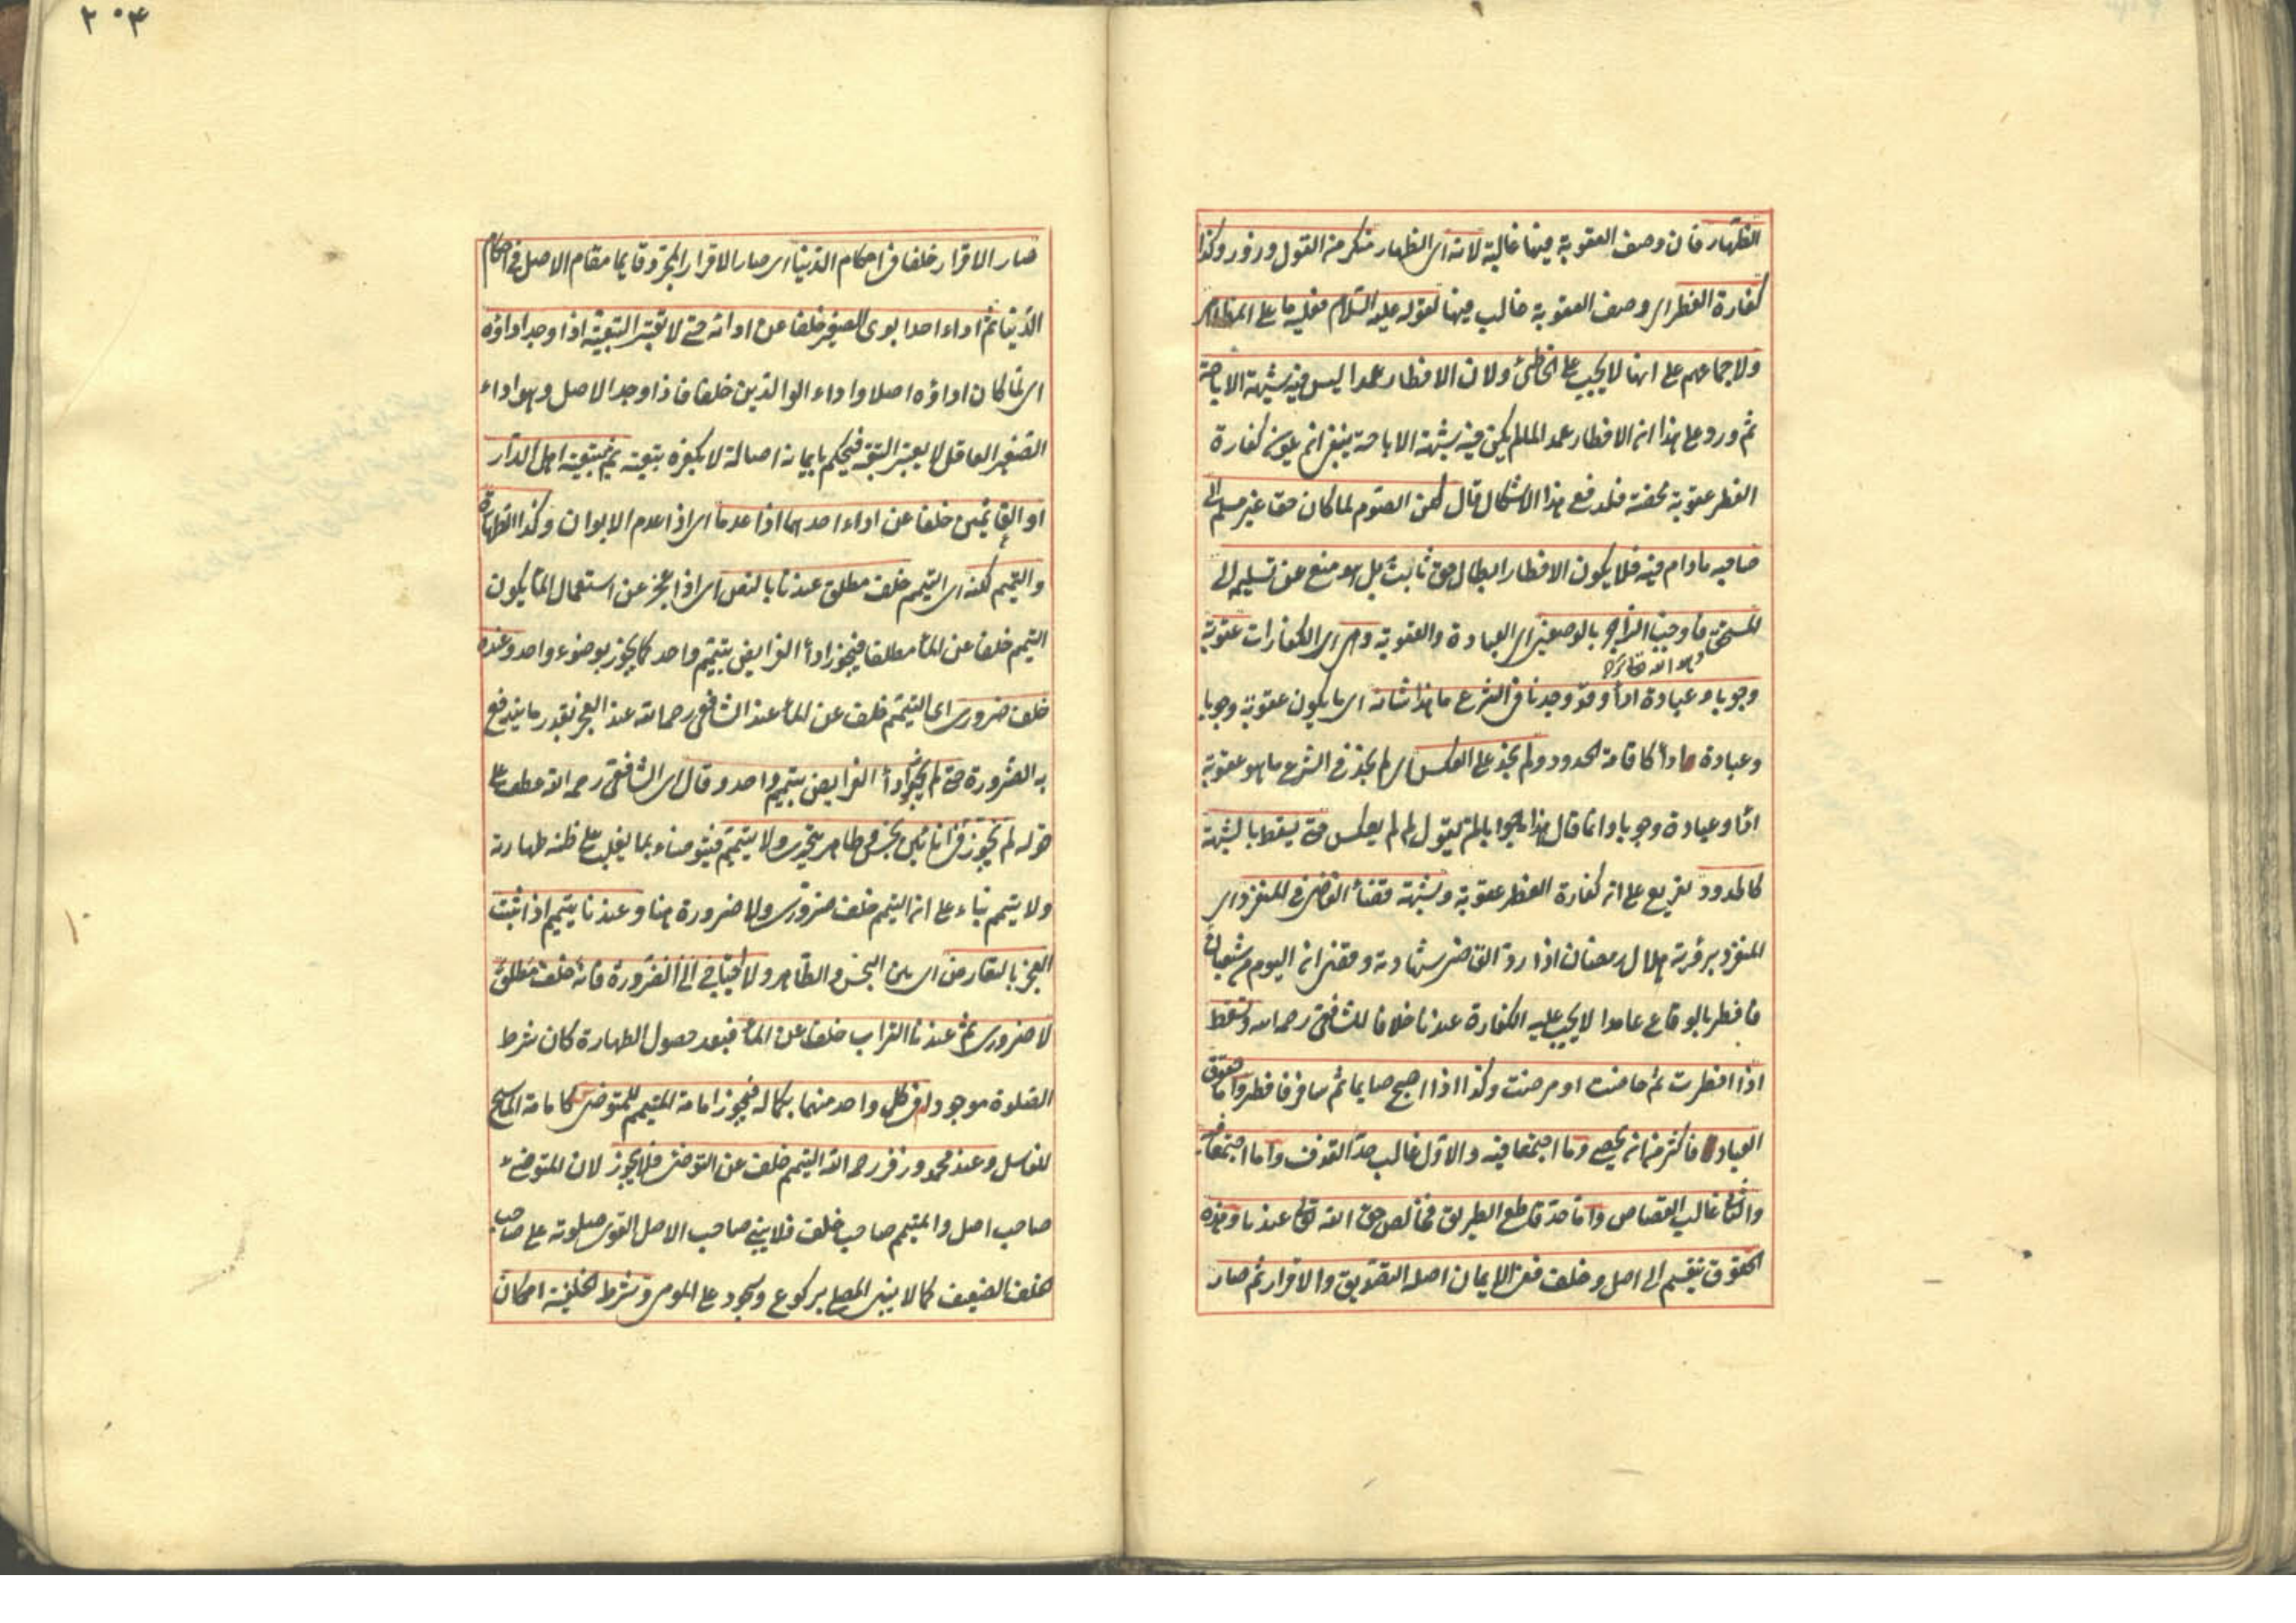 الظهار فان وصف العقوبة فيها غالبة لانه اى الظهار منكر من القول وزور وكذا
كفارة الفطر اى وصف العقوبة غالب فيها لقوله عليه السلام فعليه ما على المظاهر
ولاجماعهم على انها لا يجب على الخاطئ ولان الافطار عمدا ليس فيه شبهة الاباحة
ثم ورد على هذا ان الافطار عمدا لما لم يكن فيه شبهة الاباحة ينبغى ان يكون كفارة
الفطر عقوبة محضة فلدفع هذا الاشكال قال لكن الصوم لما كان حقا غير مسلم الى
صاحبه مادام فيه فلا يكون الافطار ابطال حق ثابت بل هو منع عن تسليمه الى
المستحق فاوجبنا الزاجر بالوصفين اى العبادة والعقوبة وهى اى الكفارات عقوبة
وجوبا وعبادة اداء وقد وجدنا فى الشرع ما هذا شانه اى ما يكون عقوبة وجوبا
وعبادة اداء كاقامة الحدود ولم نجد على العكس اى لم نجد فى الشرع ما هو عقوبة
اداء وعبادة وجوبا وانما قال هذا جوابا لمن يقول لم لم يعكس حتى يسقط بالشبهة
كالحدود تفريع على ان كفارة الفطر عقوبة وبشبهة قضاء القاضى فى المنفرد اى
المنفرد برؤية هلال رمضان اذا رد القاضى شهادته وقضى ان اليوم من شعبان
فافطر بالوقاع عامدا لا يجب عليه الكفارة عندنا خلافا للشافعى رحمه الله وتسقط
اذا افطرت ثم حاضت او مرضت وكذا اذا اصبح صايما ثم سافر فافطر واما حقوق
العباد فاكثر من ان يحصى وما اجتمعا فيه والاول غالب حد القذف واما اجتمعا فيه
والثانى غالب القصاص واما حد قاطع الطريق فخالص حق الله تعالى عندنا وهذه
الحقوق تنقسم الى اصل وخلف ففى الايمان اصله التصديق والاقرار ثم صار
٢٠٤
صار الاقرار خلفا فى احكام الدنيا اى صار الاقرار المجرد قايما مقام الاصل فى احكام
الدنيا ثم اداء احد ابوى الصغير خلفا عن ادائه حتى لا تعتبر التبعية اذا وجد اداؤه
اى لما كان اداؤه اصلا واداء الوالدين خلفا فاذا وجد الاصل وهو اداء
الصغير العاقل لا يعتبر التبع فيحكم بايمانه اصالة لا بكفره بتبعية ثم تبعية اهل الدار
او الغانمين خلفا عن اداء احدهما اذا عدما اى اذا عدم الابوان وكذا الطهارة
والتيمم لكنه اى التيمم خلف مطلق عندنا بالنص اى اذا عجز عن استعمال الماء يكون
التيمم خلفا عن الماء مطلقا فيجوز اداء الفرايض بتيمم واحد كما يجوز بوضوء واحد وعنده
خلف ضرورى اى التيمم خلف عن الماء عند الشافعى رحمه الله عند العجز بقدر ما يندفع
به الضرورة حتى لم يجز اداء الفرايض بتيمم واحد وقال اى الشافعى رحمه الله عطف على
قوله لم يجوز فى انائين نجس وطاهر يتحرى ولا يتيمم فيتوضاء بما يغلب على ظنه طهارته
ولا يتيمم بناء على ان التيمم خلف ضرورى ولا ضرورة هنا وعندنا يتيمم اذا ثبت
العجز بالتعارض اى بين النجس والطاهر ولا احتياج الى الضرورة فانه خلف مطلق
لا ضرورى ثم عندنا التراب خلف عن الماء فبعد حصول الطهارة كان شرط
الصلوة موجودا فى كل واحد منهما بكماله فيجوز امامة المتيمم للمتوضى كامامة الماسح
للغاسل وعند محمد وزفر رحمه الله التيمم خلف عن التوضى فلا يجوز لان المتوضى
صاحب اصل والمتيمم صاحب خلف فلا يبنى صاحب الاصل القوى صلوته على صاحب
الخلف الضعيف كما لا يبنى المصلى بركوع وسجود على المومى وشرط الخلفية امكان